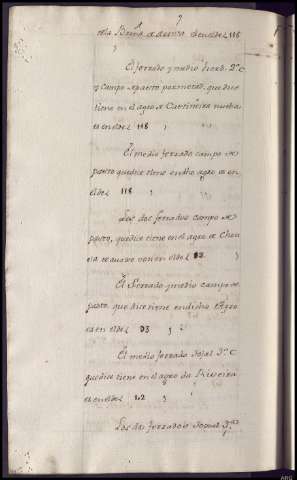 de la Brina de dentro es en el de 2 118
El ferrado y medio hered. 2ª C
y campo de pasto por metad, que dice
tiene en el agro de Castiñeira nueba
es en el de 2 118
El medio ferrado campo de
pasto que dice tiene en dho agro es en
el de 2 118
Los dos ferrados campo de
pasto, que dice tiene en el agro de Chou
sa de avajo son en el de 2 93
El ferrado y medio campo de
pasto, que dice tiene en dicho Agro
es en el de 2 93
El medio ferrado Tojal 3ª C
que dice tiene en el agro da Riveira
es en el de 2 22
Los dos ferrados Tojal 3ª